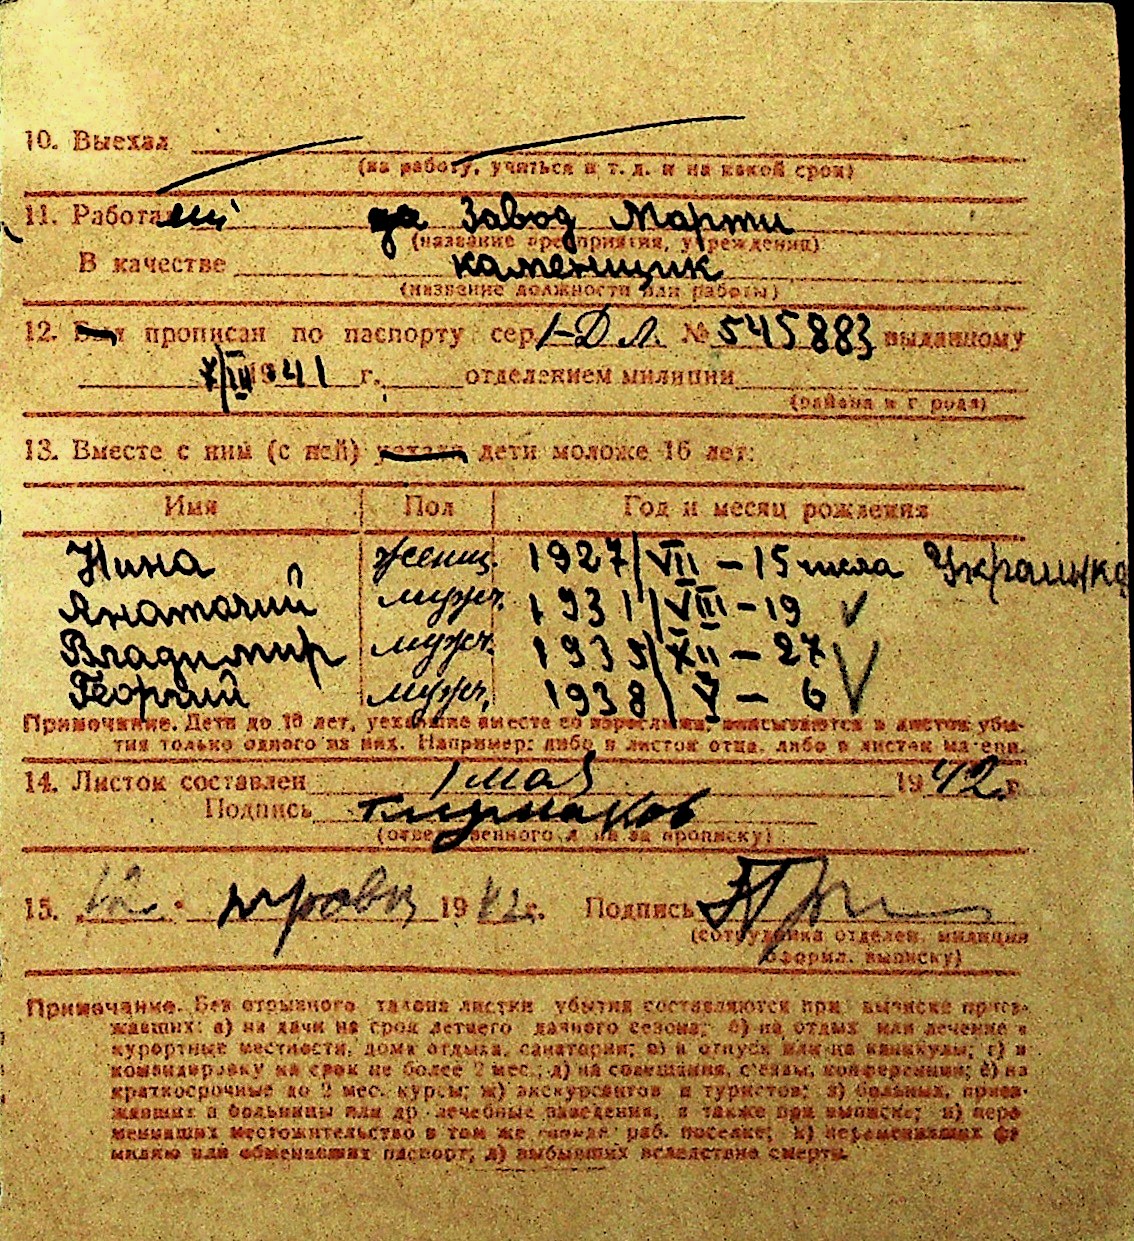 10. Выехал
(на работу, учиться и т. д. и на какой срок)
11. Работал на Завод Марти
(название предприятия, учреждения)
В качестве каменщик
(название должности или работы)
12. Был прописан по паспорту сер. I-Д Л. № 545883 выданному
1941 г. отделением милиции
(района и города)
13. Вместе с ним (с ней) уехали дети моложе 16 лет:
Имя Пол Год и месяц рождения
Нина женщ. 1927/VII – 15 числа Украинка
Анатолий мужч. 1931/VIII – 19 V
Владимир мужч. 1935/XII – 27 V
Георгий мужч. 1938/V – 6 V
Примечание. Дети до 16 лет, уехавшие вместе со взрослыми, вписываются в листок убы-
тия только одного из них. Например: либо в листок отца, либо в листок матери.
14. Листок составлен 1 мая 1942 г.
Подпись
(ответственного лица за прописку)
15. 12. 1942 г. Подпись
(сотрудника отделен. милиции
оформл. выписку)
Примечание. Без отрывного талона листки убытия составляются при выписке приез-
жавших: а) на дачи на срок летнего дачного сезона; б) на отдых или лечение в
курортные местности, дома отдыха, санатории; в) в отпуск или на каникулы; г) в
командировку на срок не более 2 мес.; д) на совещания, съезды, конференции; е) на
краткосрочные до 2 мес. курсы; ж) экскурсантов и туристов; з) больных, приез-
жавших в больницы или др. лечебные заведения, а также при выписке: и) пере-
менивших местожительство в том же городе, раб. поселке; к) переменивших фа-
милию или обменявших паспорт; л) выбывших вследствие смерти.